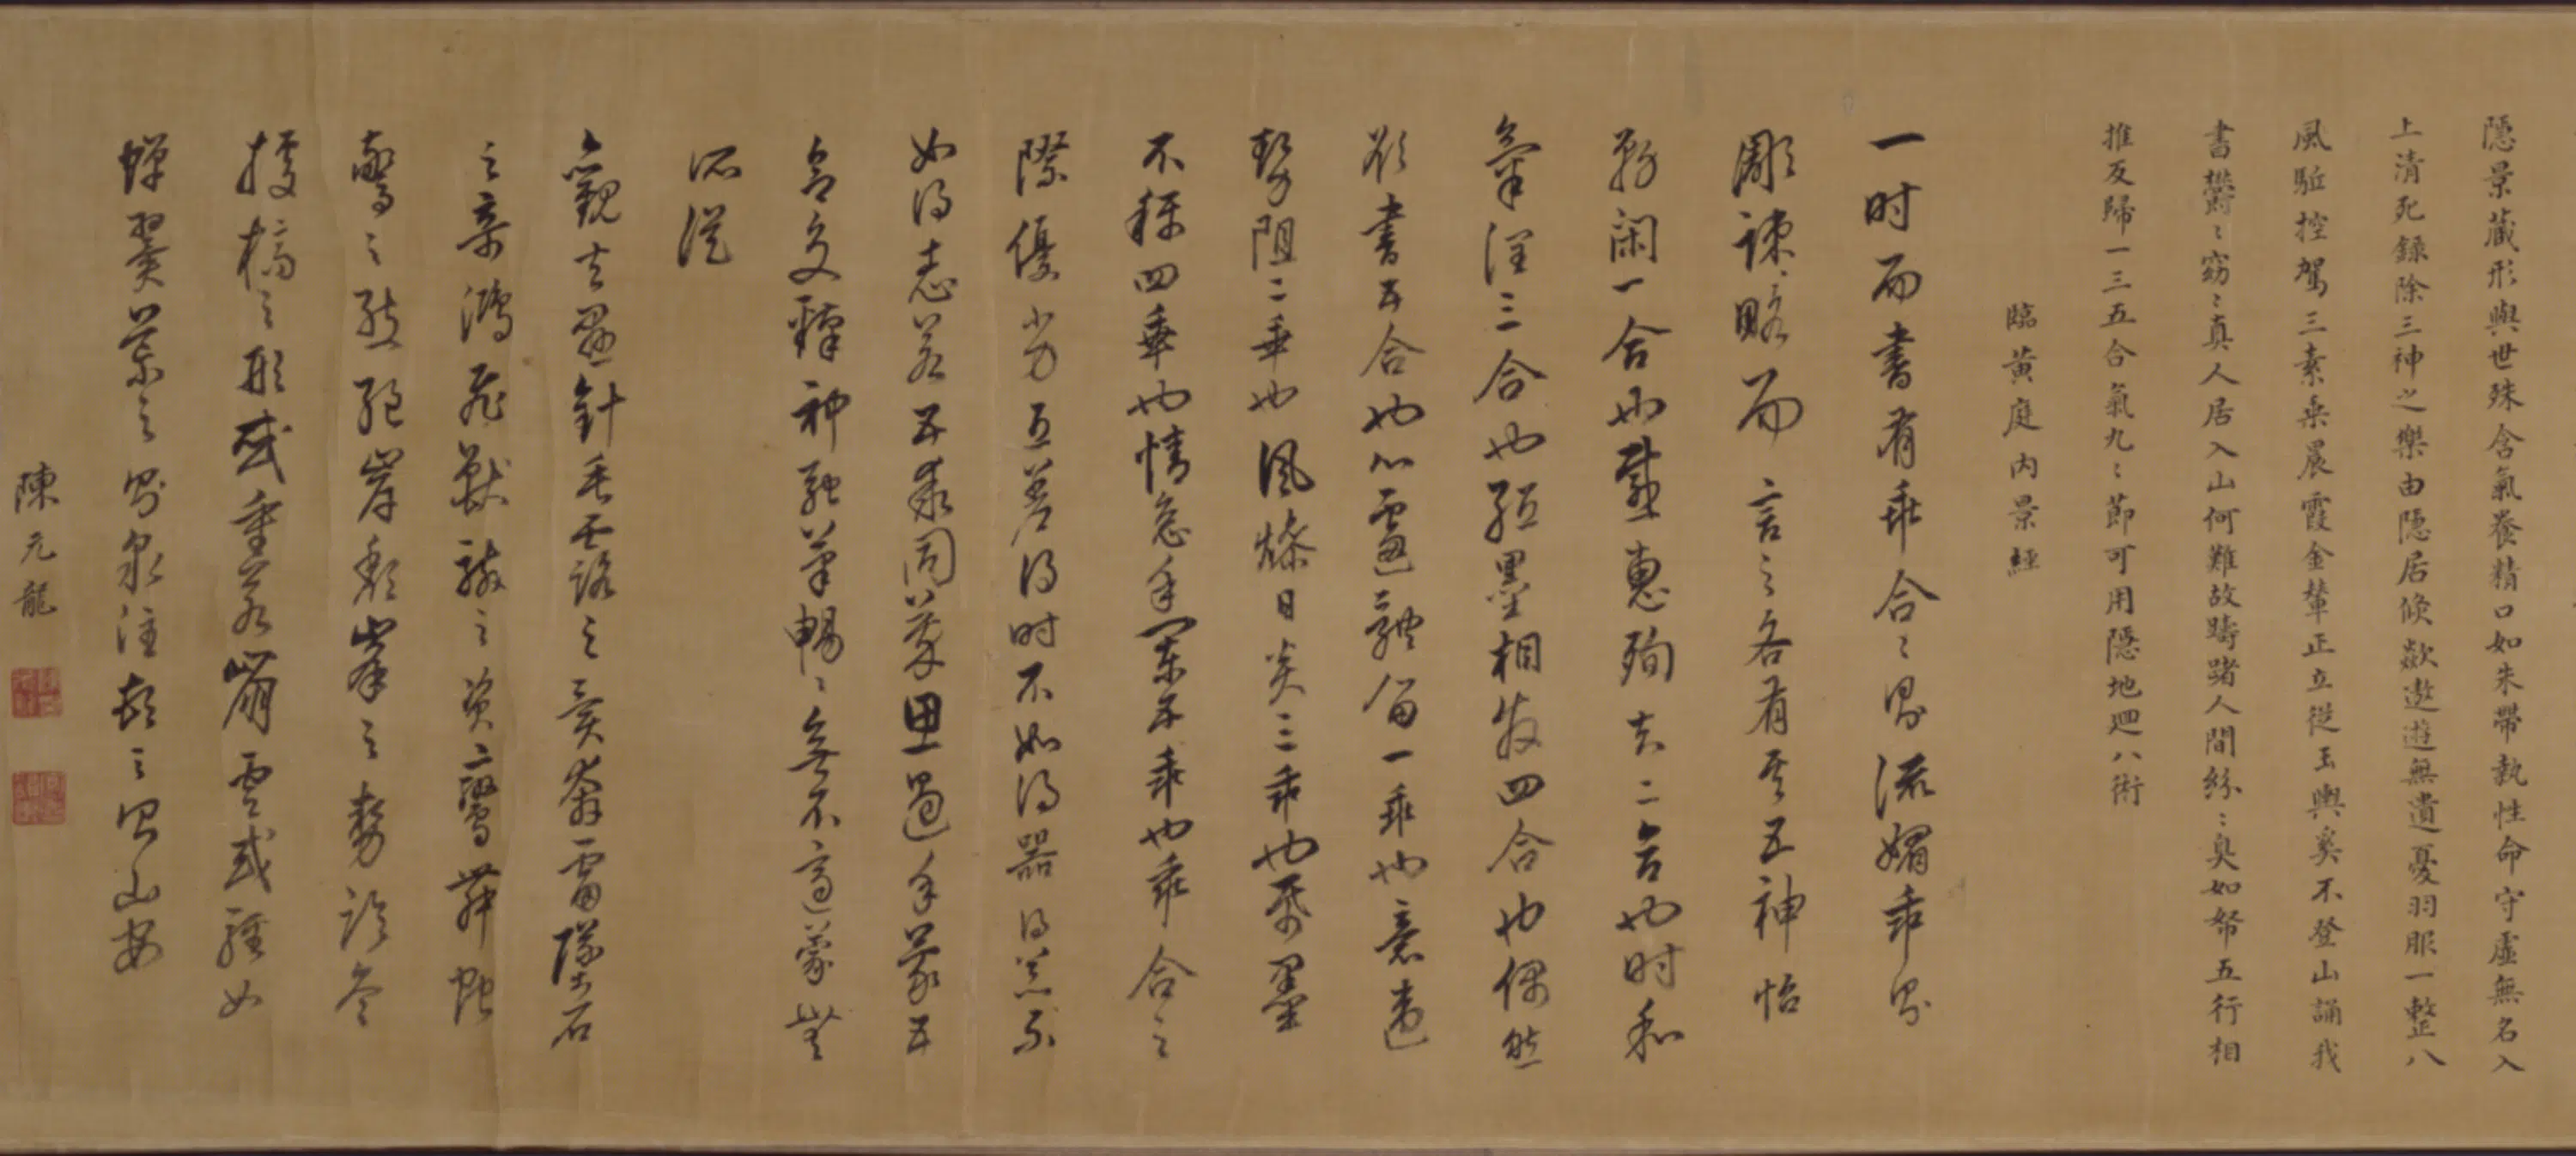 隱景藏形與世殊含氣養精口如朱帶執性命守虛無名入
上清死錄除三神之樂由隱居倏歘遨遊無遺憂羽服一整八
風驅控駕三素乘晨霞金輦正立從玉輿奚不登山誦我
書欝〻窈〻真人居入山何難故躊躇人間紛〻臭如帑五行相
推反歸一三五合氣九〻節可用隱地迴八術
臨黃庭内景經
一时而書有乖合〻則流媚乖則
彫疎略而言之各有其五神怡
務閑一合也感惠殉知二合也时和
氣潤三合也紙墨相發四合也偶然
欲書五合也心遽體留一乖也意違
勢阻二乖也風燥日炎三乖也紙墨
不稱四乖也情怠手闌五乖也乖合之
際優劣互差得时不如得器得器不
如得志若五乖同萃思遏手蒙五
合交臻神融筆暢〻無不適蒙無
所從
觀夫懸針垂露之異奔雷墜石
之奇鴻飛獸駭之資鸞舞蛇
驚之態絕岸頹峯之勢臨危
據槁之形或重若崩雲或輕如
蟬翼導之則泉注頓之則山安
陳元龍